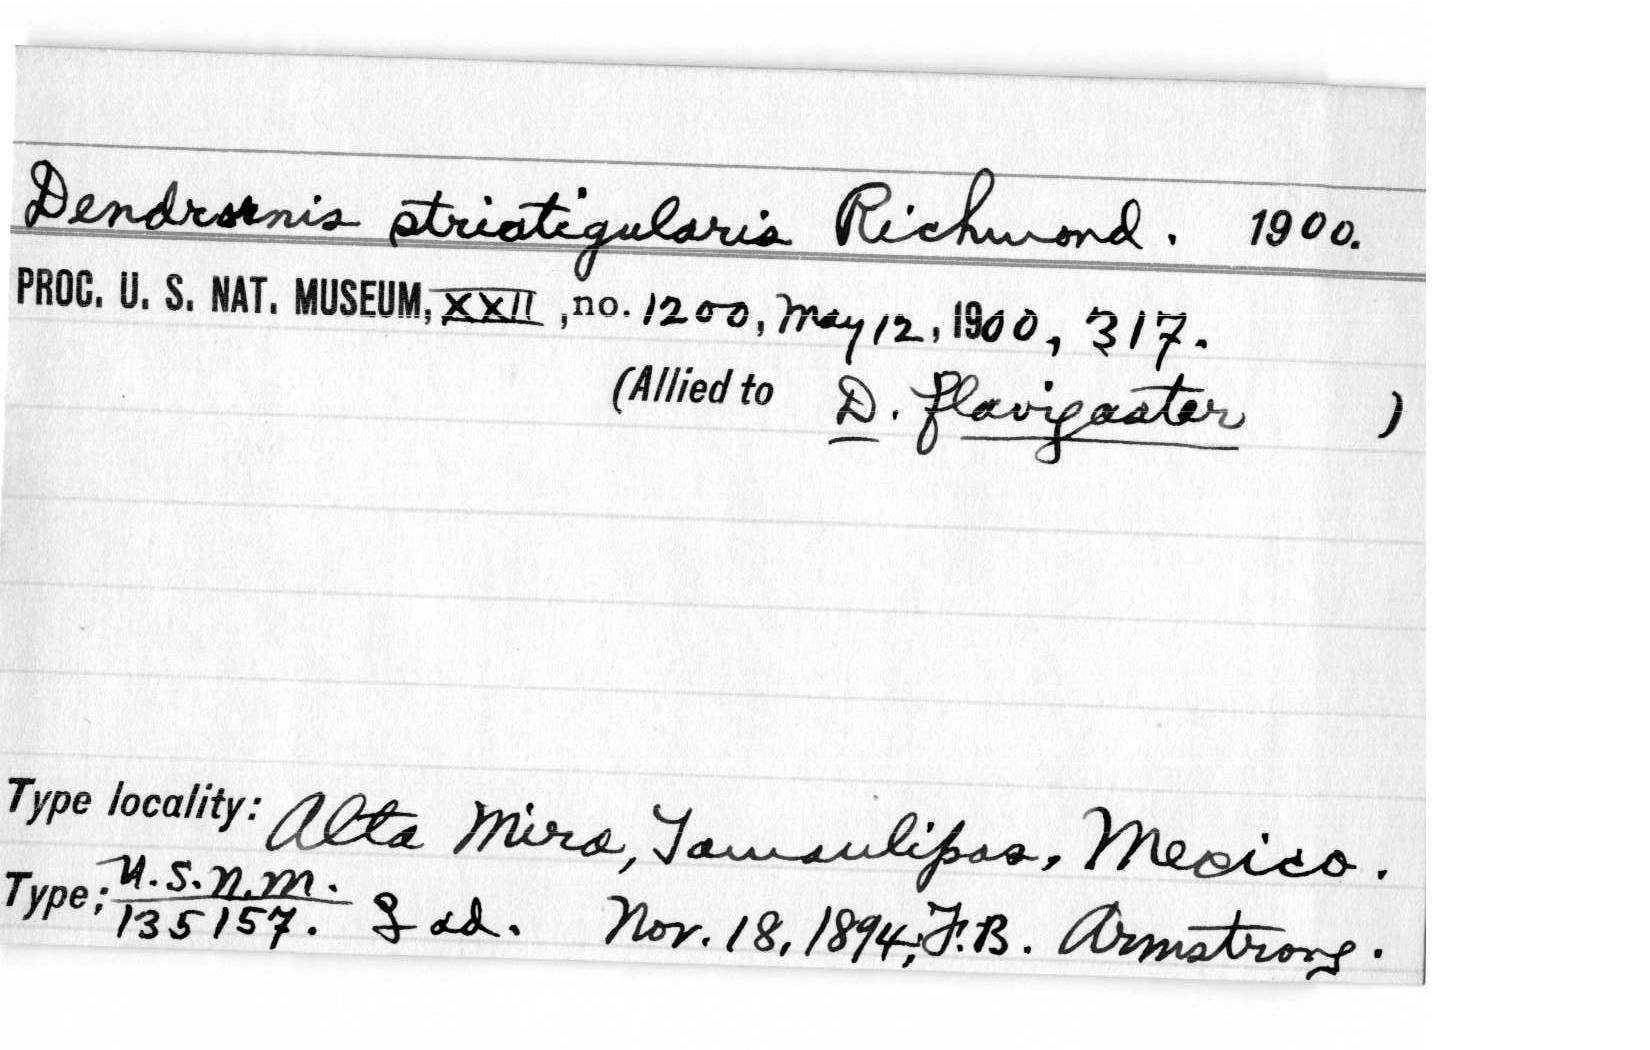 Dendrornis striatigularis Richmond. 1900.
PROC. U. S. NAT. MUSEUM, XXII, no. 1200, May 12, 1900, 317.
(Allied to D. flavigaster )
Type locality: Alta Mira, Tamaulipas, Mexico.
Type: U.S.N.M. 135157. ad. Nov. 18, 1894, F.B. Armstrong.